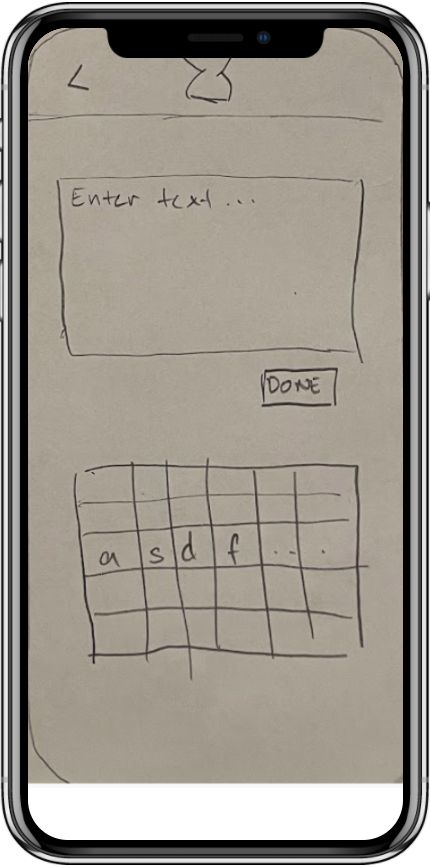 <
Enter text ...
DONE
a s d f ...